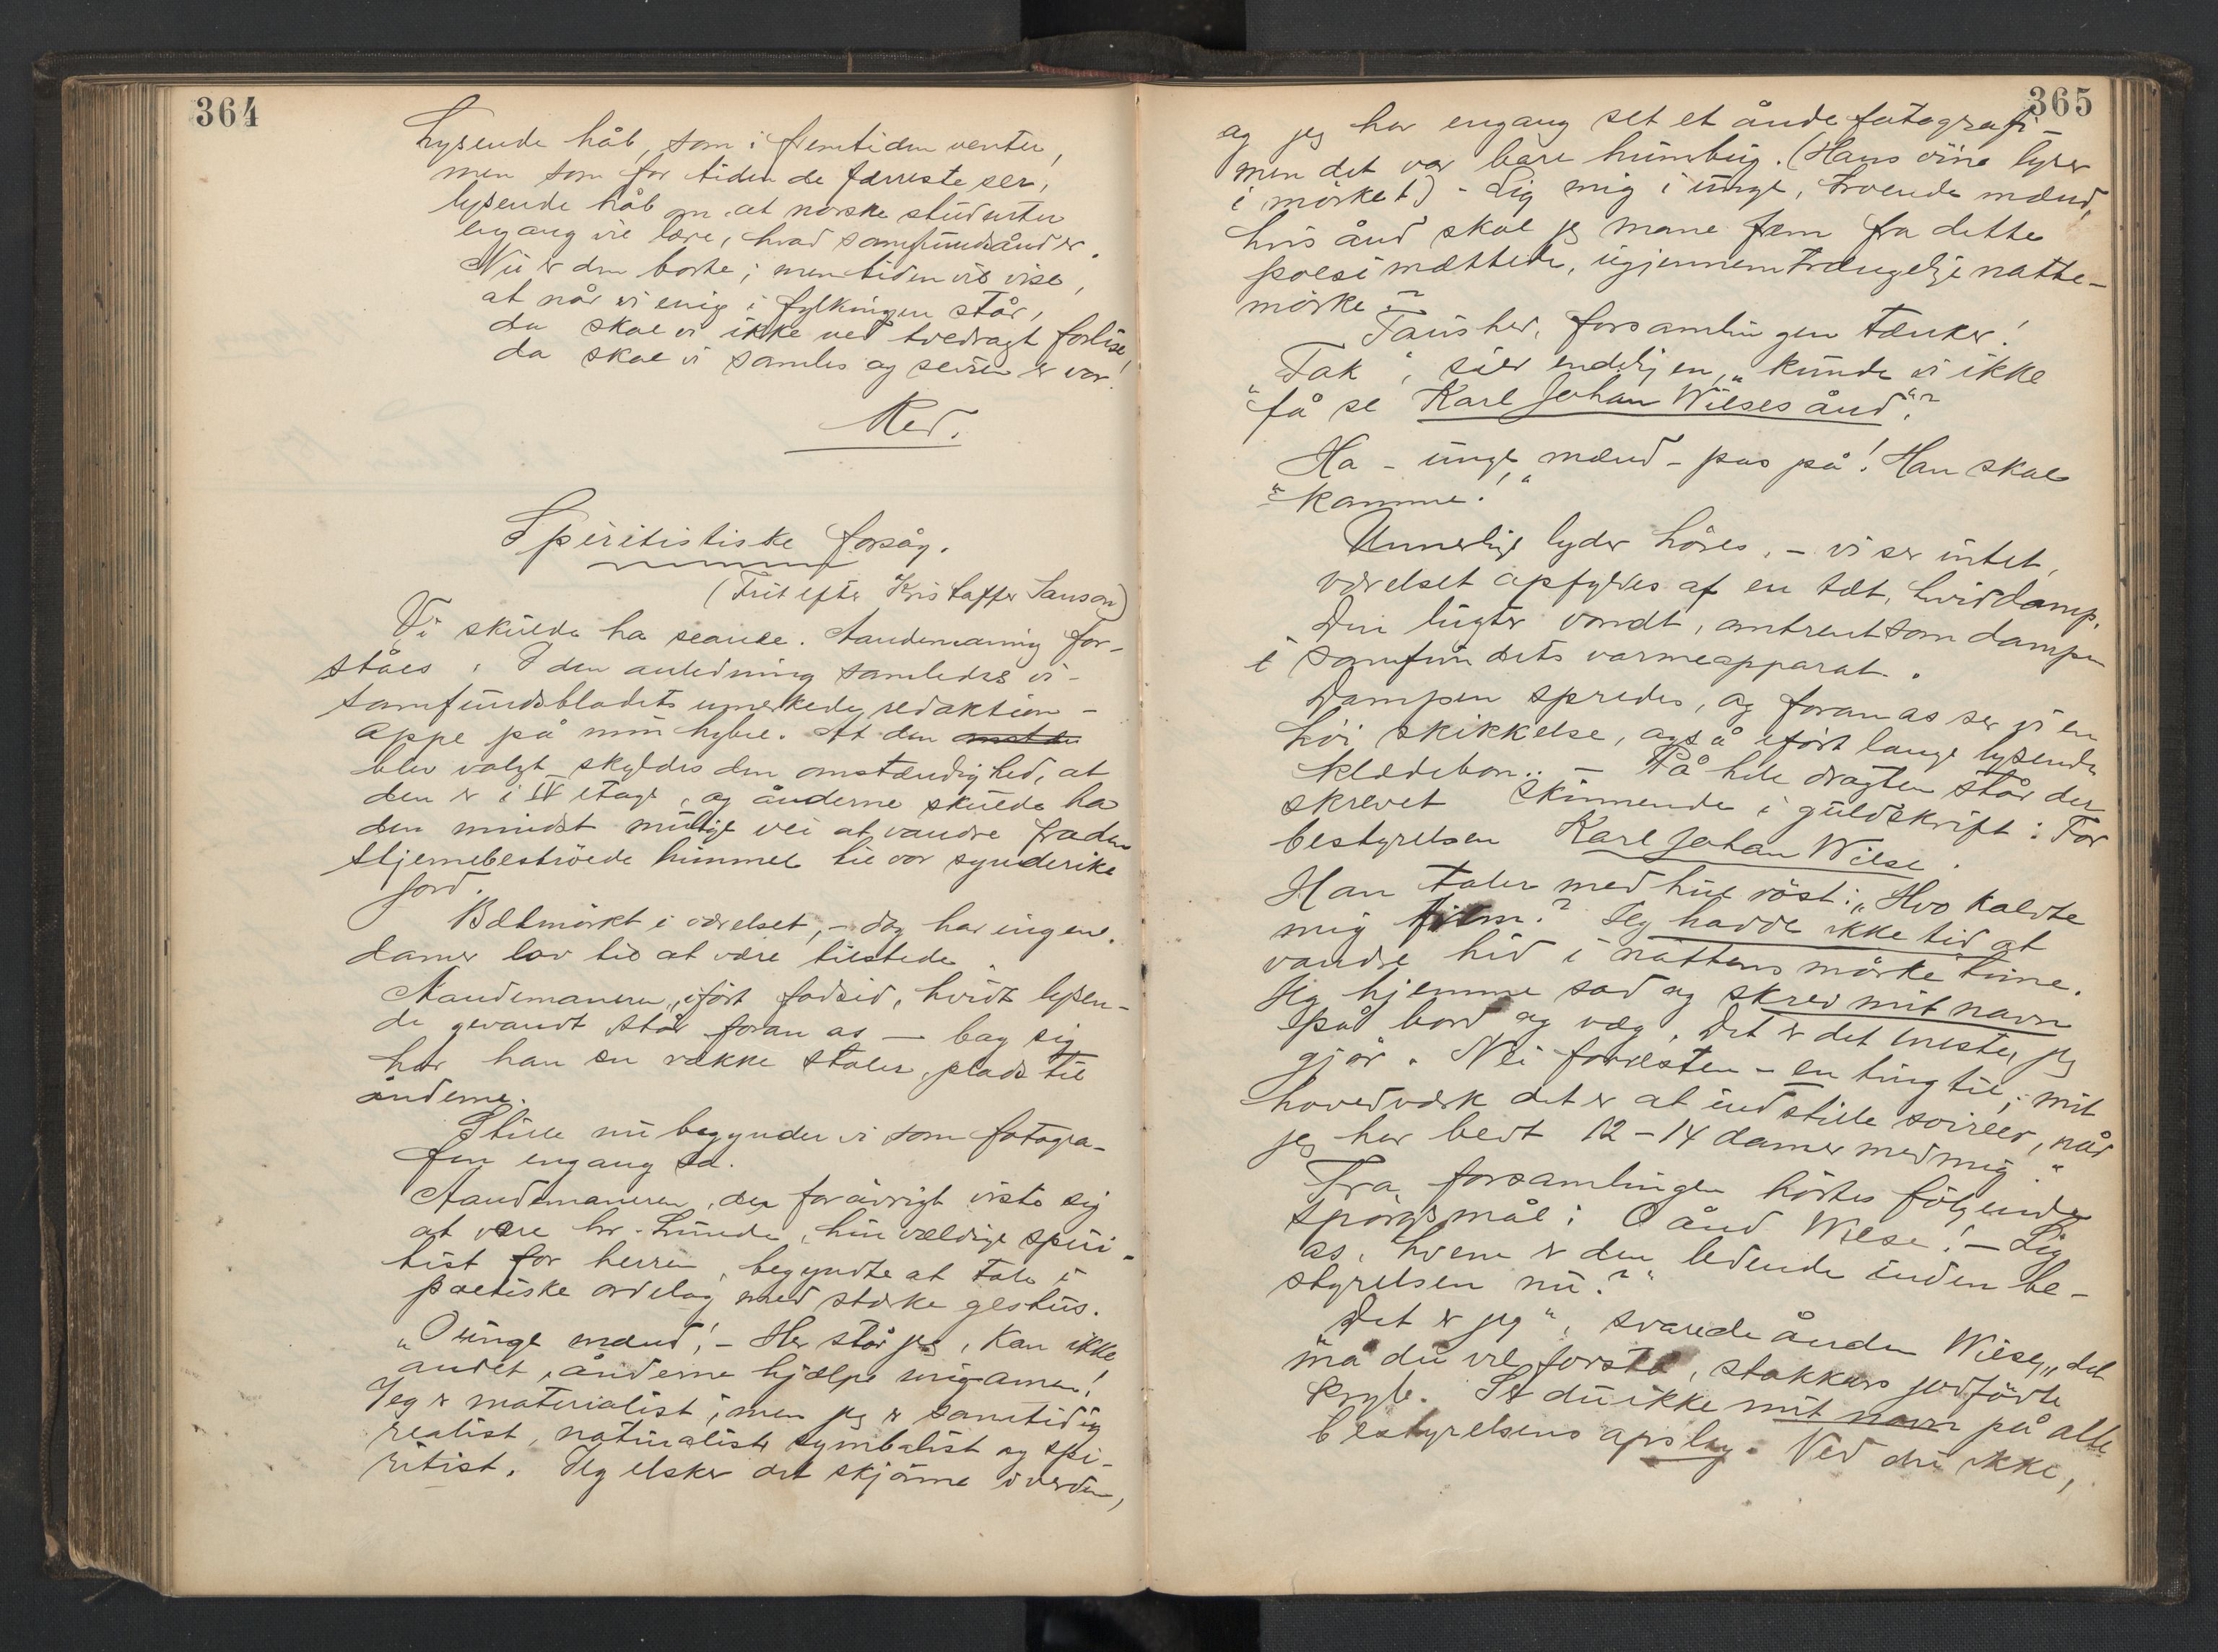 364
Lysende håb, som i fremtiden venter,
men som for tiden de færreste ser,
lysende håb om at norske studenter
engang vil lære, hvad samfundsånd er.
Nu er den borte; men tiden vil vise,
at når vi enig i fylkingen står,
da skal vi ikke ved tvedragt forlise!
da skal vi samles og seiren er vor!
Red.
Spiritistiske forsøg.
(Frit efter Kristoffer Janson)
Vi skulde ha seance. Aandemaning for-
ståes. I den anledning samledes vi -
samfundsbladets umerkede redaktion -
oppe på min hybel. At den
blev valgt skyldes den omstændighed, at
den er i IV etage, og ånderne skulde ha
den mindst mulige vei at vandre fra den
stjernebestrøede himmel til vor synderike
jord.
Bælmørkt i værelset, - dog har ingen
damer lov til at være tilstede.
Aandemaneren, iført fodsid, hvidt lysen-
de gevandt står foran os - bag sig
har han en række stoler, plads til
ånderne.
Stille nu begynder vi som fotogra-
fen engang sa.
Aandemaneren, der forøvrigt viste sig
at være hr. Lunde, hin vældige spiri-
tist for herren, begyndte at tale i
poetiske ordelag med stærke gestus.
"O unge mænd! - Her står jeg, kan ikke
andet, ånderne hjælpe mig amen!
Jeg er materialist, men jeg er samtidig
realist, naturalist symbolist og spi-
ritist. Jeg elsker det skjønne i verden,
365
og jeg har engang set et åndefotografi -
men det var bare humbug. (Hans øine lyser
i mørket) - Sig mig i unge, troende mænd,
hvis ånd skal jeg mane frem fra dette
poesimættede, ugjennemtrængelige natte-
mørke?"
Taushed, forsamlingen tænker!
"Tak", sier endelig en, "kunde vi ikke
"få se Karl Johan Wilses ånd"?
Ha - unge mænd - pas på! Han skal
"komme!"
Unnerlige lyder høres, - vi ser intet,
værelset opfyldes af en tæt, hvid damp.
Den lugter vondt, omtrent som dampen
i samfundets varmeapparat.
Dampen spredes, og foran os ser vi en
høi skikkelse, også iført lange lysende
klædebon. - På hele dragten står der
skrevet skinnende i guldskrift: For
bestyrelsen Karl Johan Wilse.
Han taler med hul røst: "Hvo kaldte
mig frem? Jeg hadde ikke tid at
vandre hid i nattens mørke time.
Jeg hjemme sad og skrev mit navn
på bord og væg, det er det meste jeg
gjør. Nei forresten - en ting til, mit
hovedværk det er at indstille soireer, når
jeg har bedt 12-14 damer med mig."
Fra forsamlingen hørtes følgende
spørgsmål: O ånd Wilse! - Sig
os, hvem er den ledende inden be-
styrelsen nu?"
"Det er jeg", svarede ånden Wilse, "det
må du vel forstå, stakkars jordfødte
kryb. Ser du ikke mit navn på alle
bestyrelsens opslag. Ved du ikke,